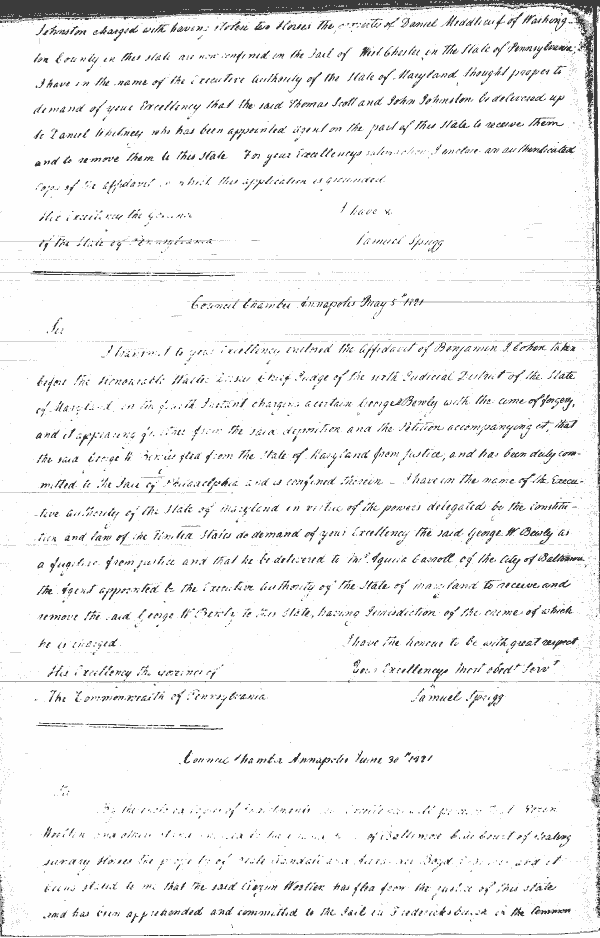 Johnston charged with having stolen two Horses the property of Daniel Middlecauf of Washing-
ton County in this state are now confined in the Jail of West Chester in the State of Pennsylvania,
I have in the name of the Executive authority of the State of Maryland thought proper to
demand of your Excellency that the said Thomas Scott and John Johnston be delivered up
to Daniel Whitney who has been appointed agent on the part of this State to receive them
and to remove them to this State For your Excellencys satisfaction I enclose an authenticated
Copy of the affidavit on which this application is grounded
His Excellency the Governor I have &
of the State of Pennsylvania Samuel Sprigg
Council Chamber Annapolis May 5th 1821
Sir
I transmit to your Excellency enclosed the affidavit of Benjamin I Cohen taken
before the Honourable Walter Dorsey Chief Judge of the sixth Judicial District of the State
of Maryland, on the fourth Instant charging a certain George W Bewly with the crime of forgery,
and it appearing further from the said deposition and the Petition accompanying it, that
the said George W. Bewley fled from the State of Maryland from justice, and has been duly com-
mitted to the Jail of Philadelphia and is confined therein – I have in the name of the Execu-
tive authority of the State of Maryland in virtue of the powers delegated by the constitu-
tion and law of the United States do demand of your Excellency the said George W Bewly as
a fugitive from justice and that he be delivered to Mr. Aquila Carroll of the City of Baltimore
the Agent appointed by the Executive authority of the State of Maryland to receive and
remove the said George W Bewly to this State, having Jurisdiction of the crime of which
he is charged I have the honour to be with great respect
His Excellency the Governor of Your Excellencys most obedt Servt
The Commonwealth of Pennsylvania Samuel Sprigg
Council Chamber Annapolis June 30th 1821
Sir
By the enclosed Copies of Indictments your Excellency will perceive that
of Baltimore County Court of stealing
sundry Horses the property of Randall and Boyd and it
being stated to me that the said has fled from the justice of this State
and has been apprehended and committed to the Jail in Fredericksburgh in the Common